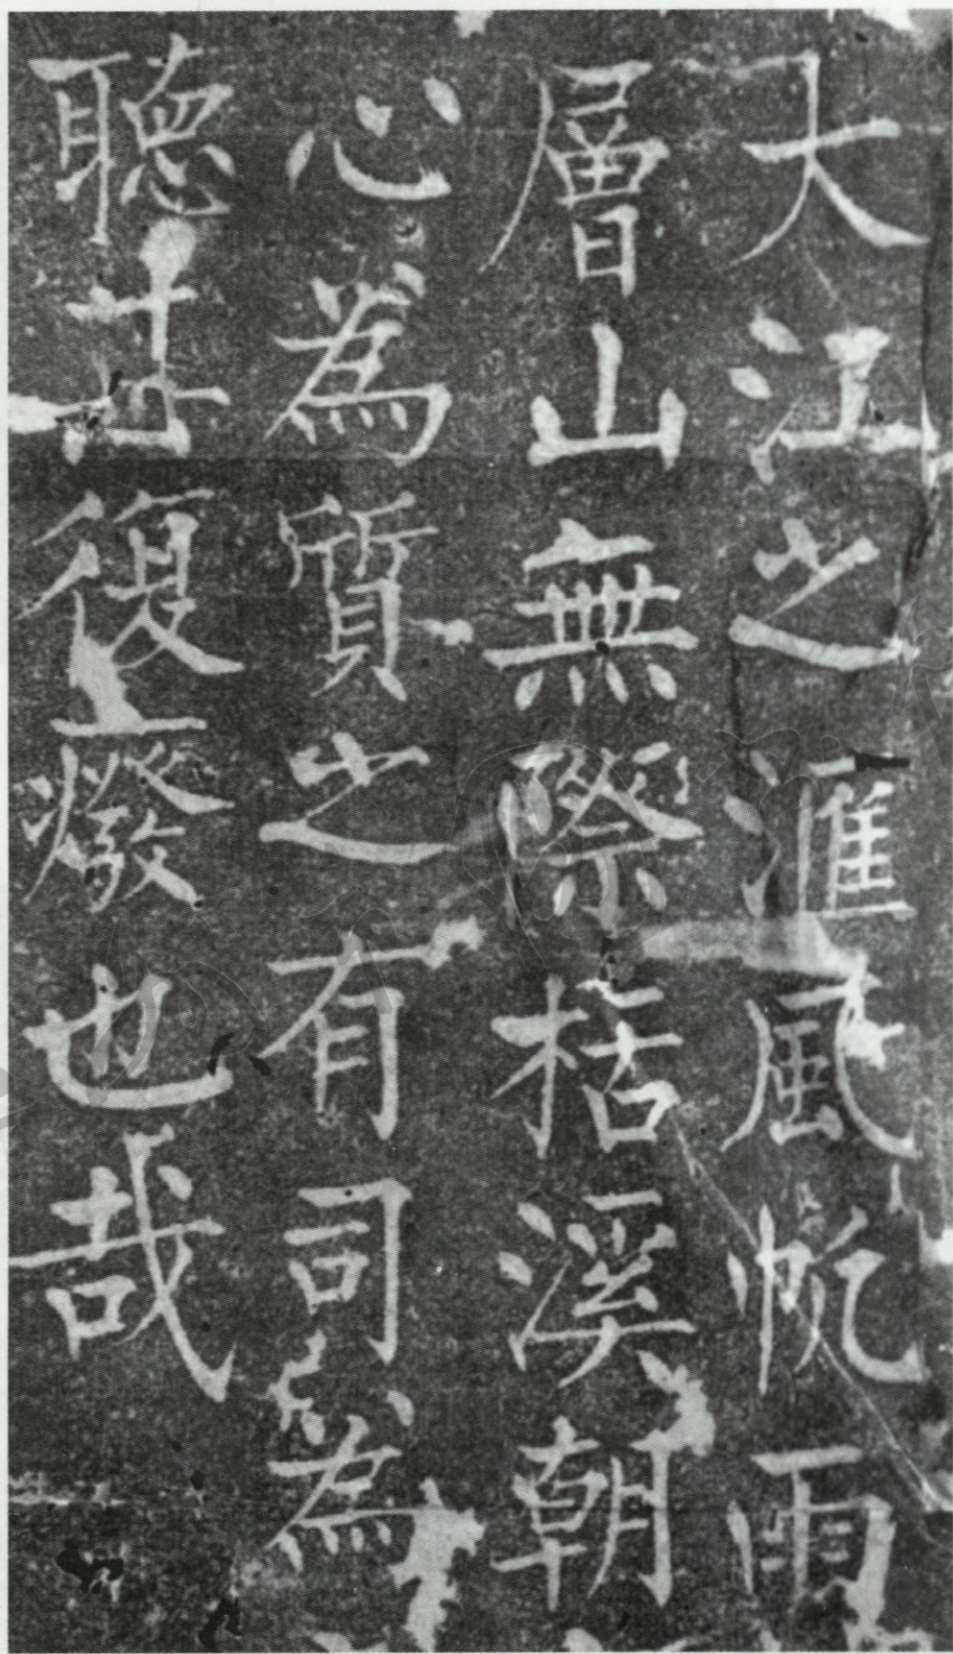 大江之滙風帆雨
層山無際栝溪朝
心為質之有司為
聽其復癈也哉